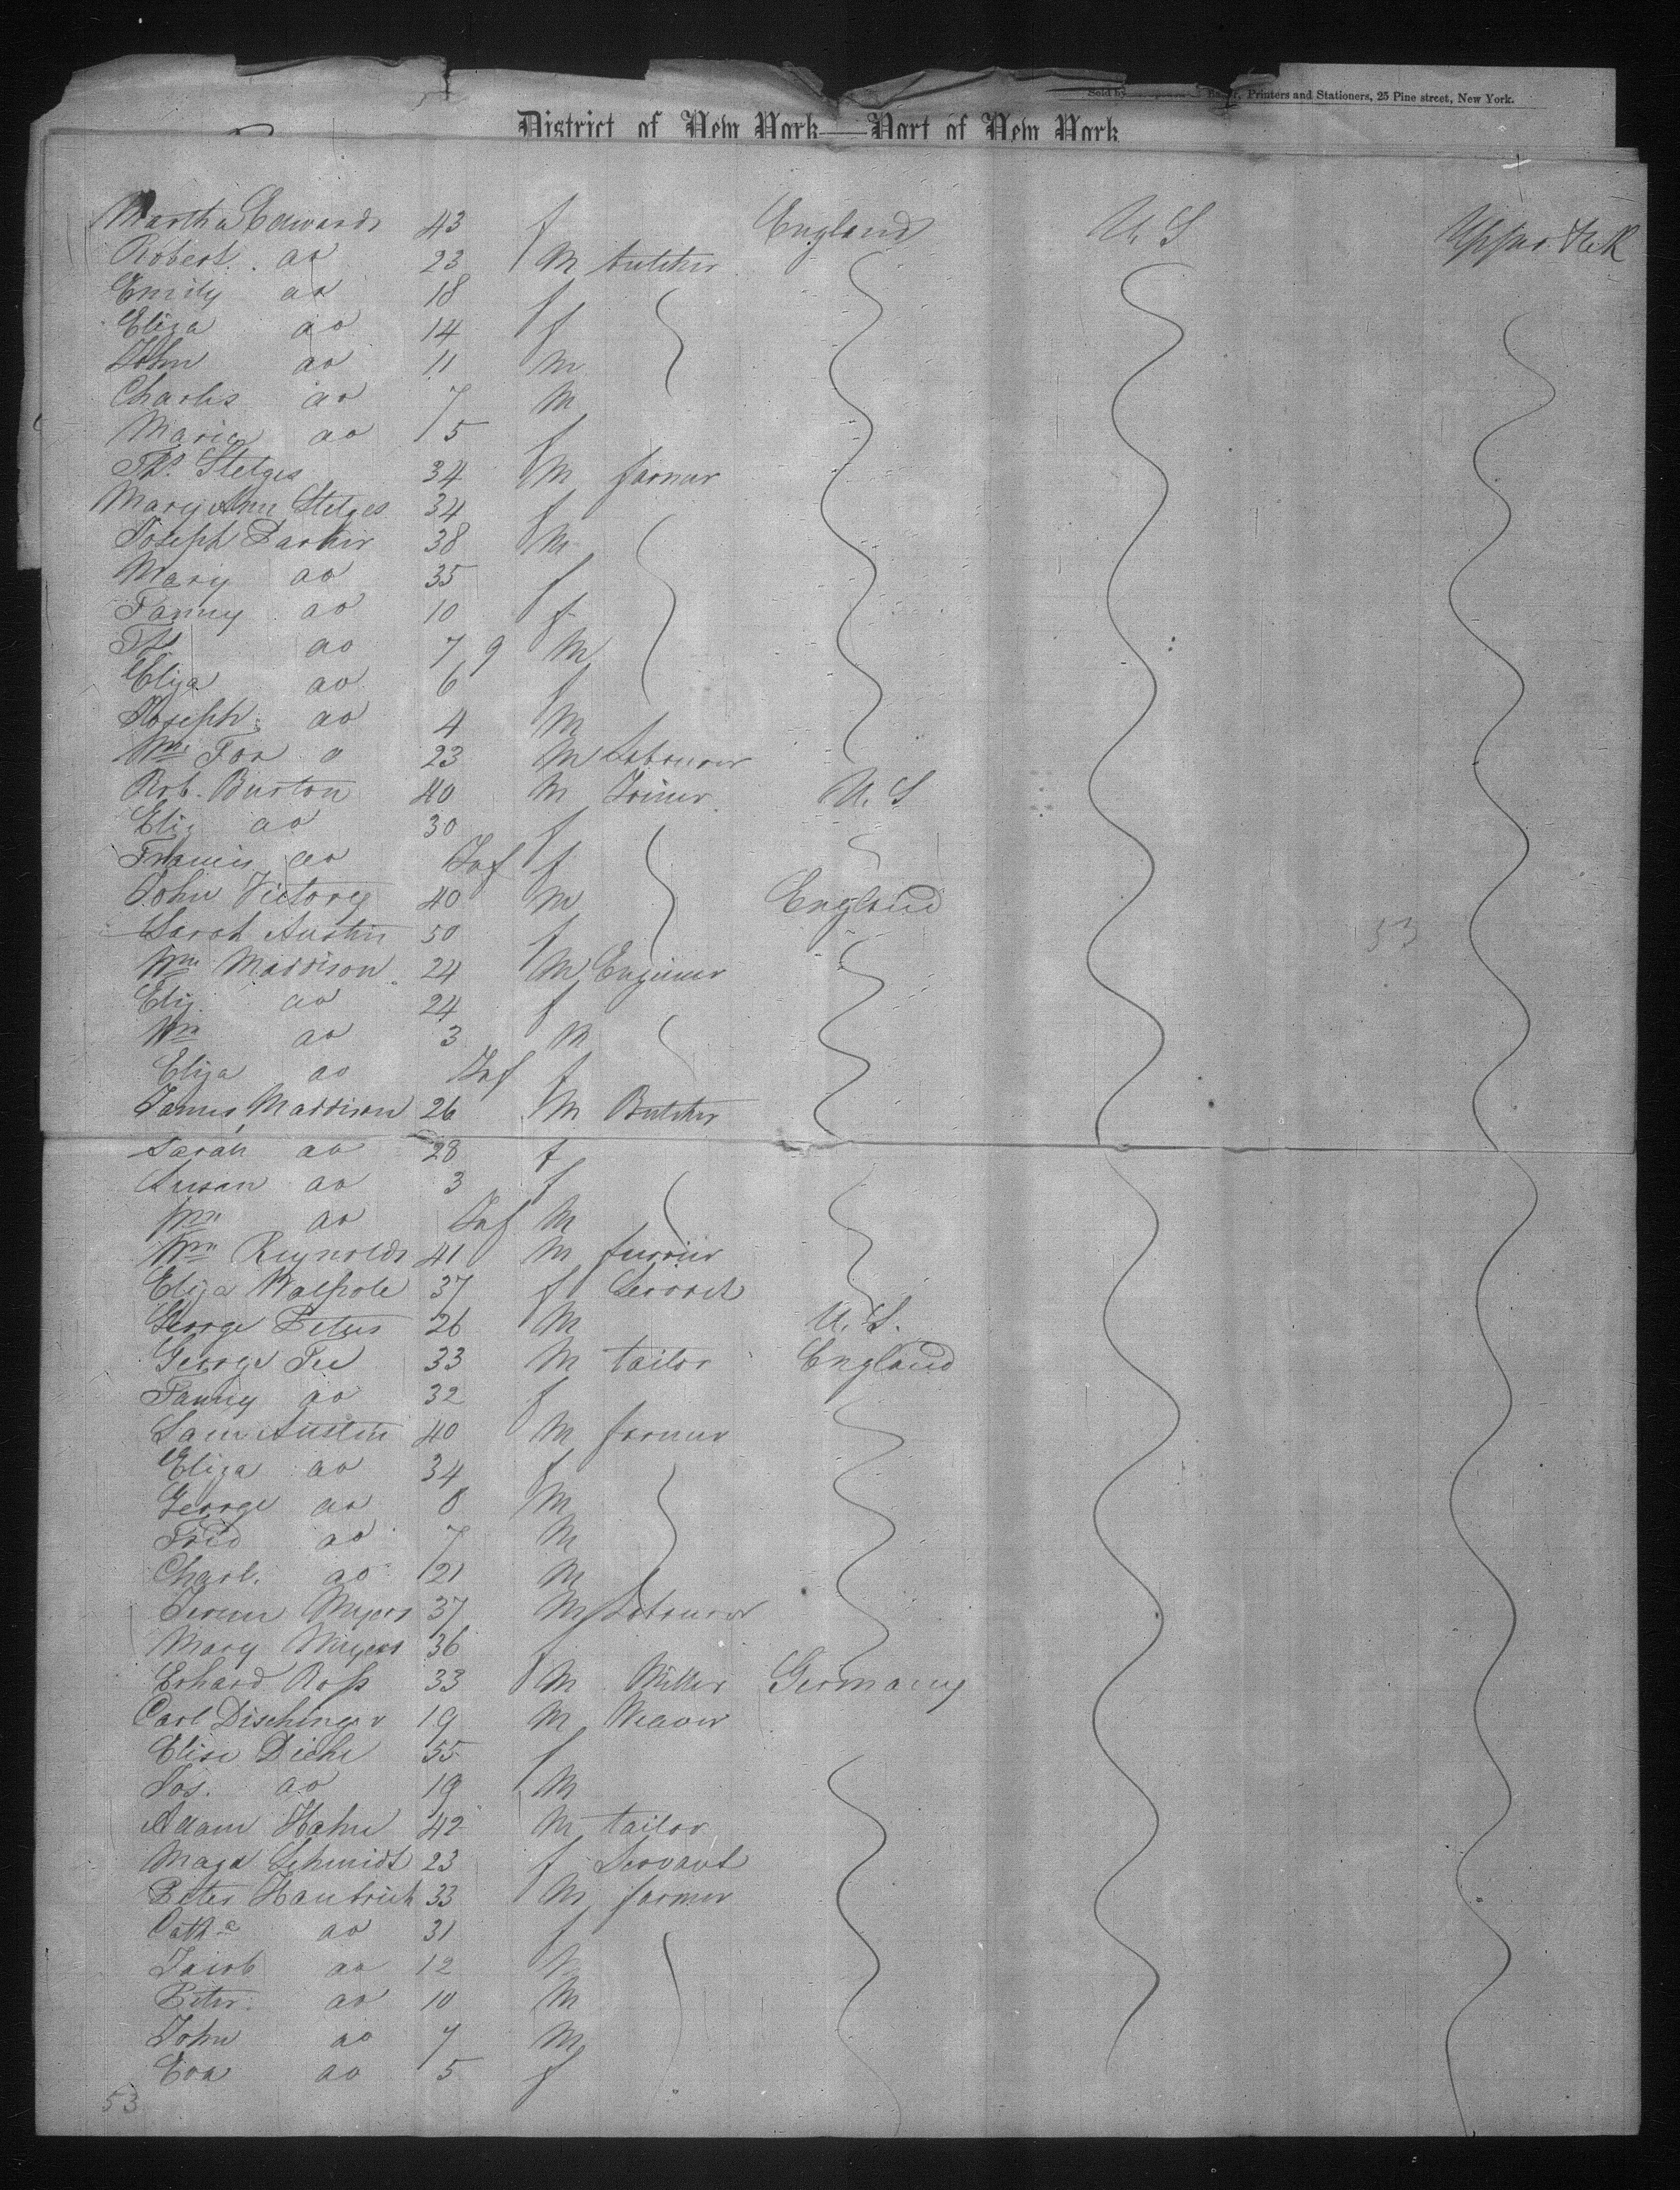 Sold by Printers and Stationers, 25 Pine street, New York.
District of New York—Port of New York
Martha Edwards 43 f England U. S Upper deck
Robert do 23 M butcher
Emily do 18 f
Eliza do 14 f
John do 11 M
Charles do 7 M
Maria do 5 f
Ths. Stelges 34 M farmer
Mary Ann Stelges 34 f
Joseph Parker 38 M
Mary do 35 f
Fanny do 10 f
Ths do 7 9 M
Eliza do 6 f
Joseph do 4 M
Wm Fox 23 M Labourer
Rob. Burton 40 M Joiner U. S
Eliz do 30 f
Francis do Inf f
John Victorey 40 M England
Sarah Austin 50 f
33
Wm Maddison 24 M Engineer
Eliz do 24 f
Wm do 3 M
Eliza do Inf f
James Maddison 26 M Butcher
Sarah do 28 f
Susan do 3 f
Wm do Inf M
Wm Reynolds 41 M furrier
Eliza Walpole 37 f
George Peters 26 M U. S.
George Tee 33 M tailor England
Fanny do 32 f
Sam Austin 40 M farmer
Eliza do 34 f
George do 8 M
Fred do 7 M
Charl. do 21 M
Myers 37 M Labourer
Mary Myers 36 f
Erhard Roß 33 M Miller Germany
Carl Dischinger 19 M Weaver
Elise Diehl 55 f
Jos. do 19 M
Adam Hahn 42 M tailor
Magd Schmidt 23 f Servant
Peter Hautrich 33 M farmer
Catha do 31 f
Jacob do 12 M
Peter do 10 M
John do 7 M
Eva do 5 f
53